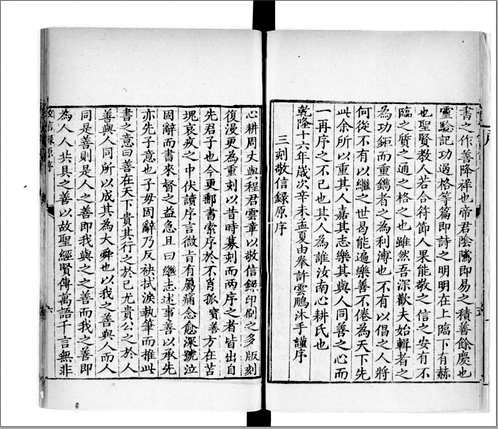 書之作善降祥也帝君陰隲即易之積善餘慶也
靈驗記功過格等篇即詩之明明在上臨下有赫
也聖賢教人若合符節人果能敬之信之安有不
臨之質之通之格之也雖然吾深歎夫始輯者之
為功鉅而重鐫者之為利溥也不有以倡之人將
何從不有以繼之世曷能遍樂善不倦為天下先
此余所以重其人嘉其志樂其與人同善之心而
一再序之不已也其人為誰汝南心耕氏也
乾隆十六年歲次辛未孟夏由拳許雲鵬沐手謹序
三刻敬信錄原序
心耕周丈與程君雲章以敬信錄印刷之多版刻
復漫更為重刻以昔時募刻而兩序之者皆出自
先君子也今更郵書索序於不肖孤寳善方在苫
塊哀疚之中伏讀序言微旨有屬痛念愈深號泣
因辭而書來督之益急且曰繼志述事善以承先
亦先子意也子毋固辭乃反袂拭淚執筆而推此
書之意曰善在天下貴其行之於己尤貴公之於人
善與人同所以成其為大舜也以我之善與人而人
同是善則是人之善即我與之之善而我之善即
為人人共具之善以故聖經賢傳萬語千言無非